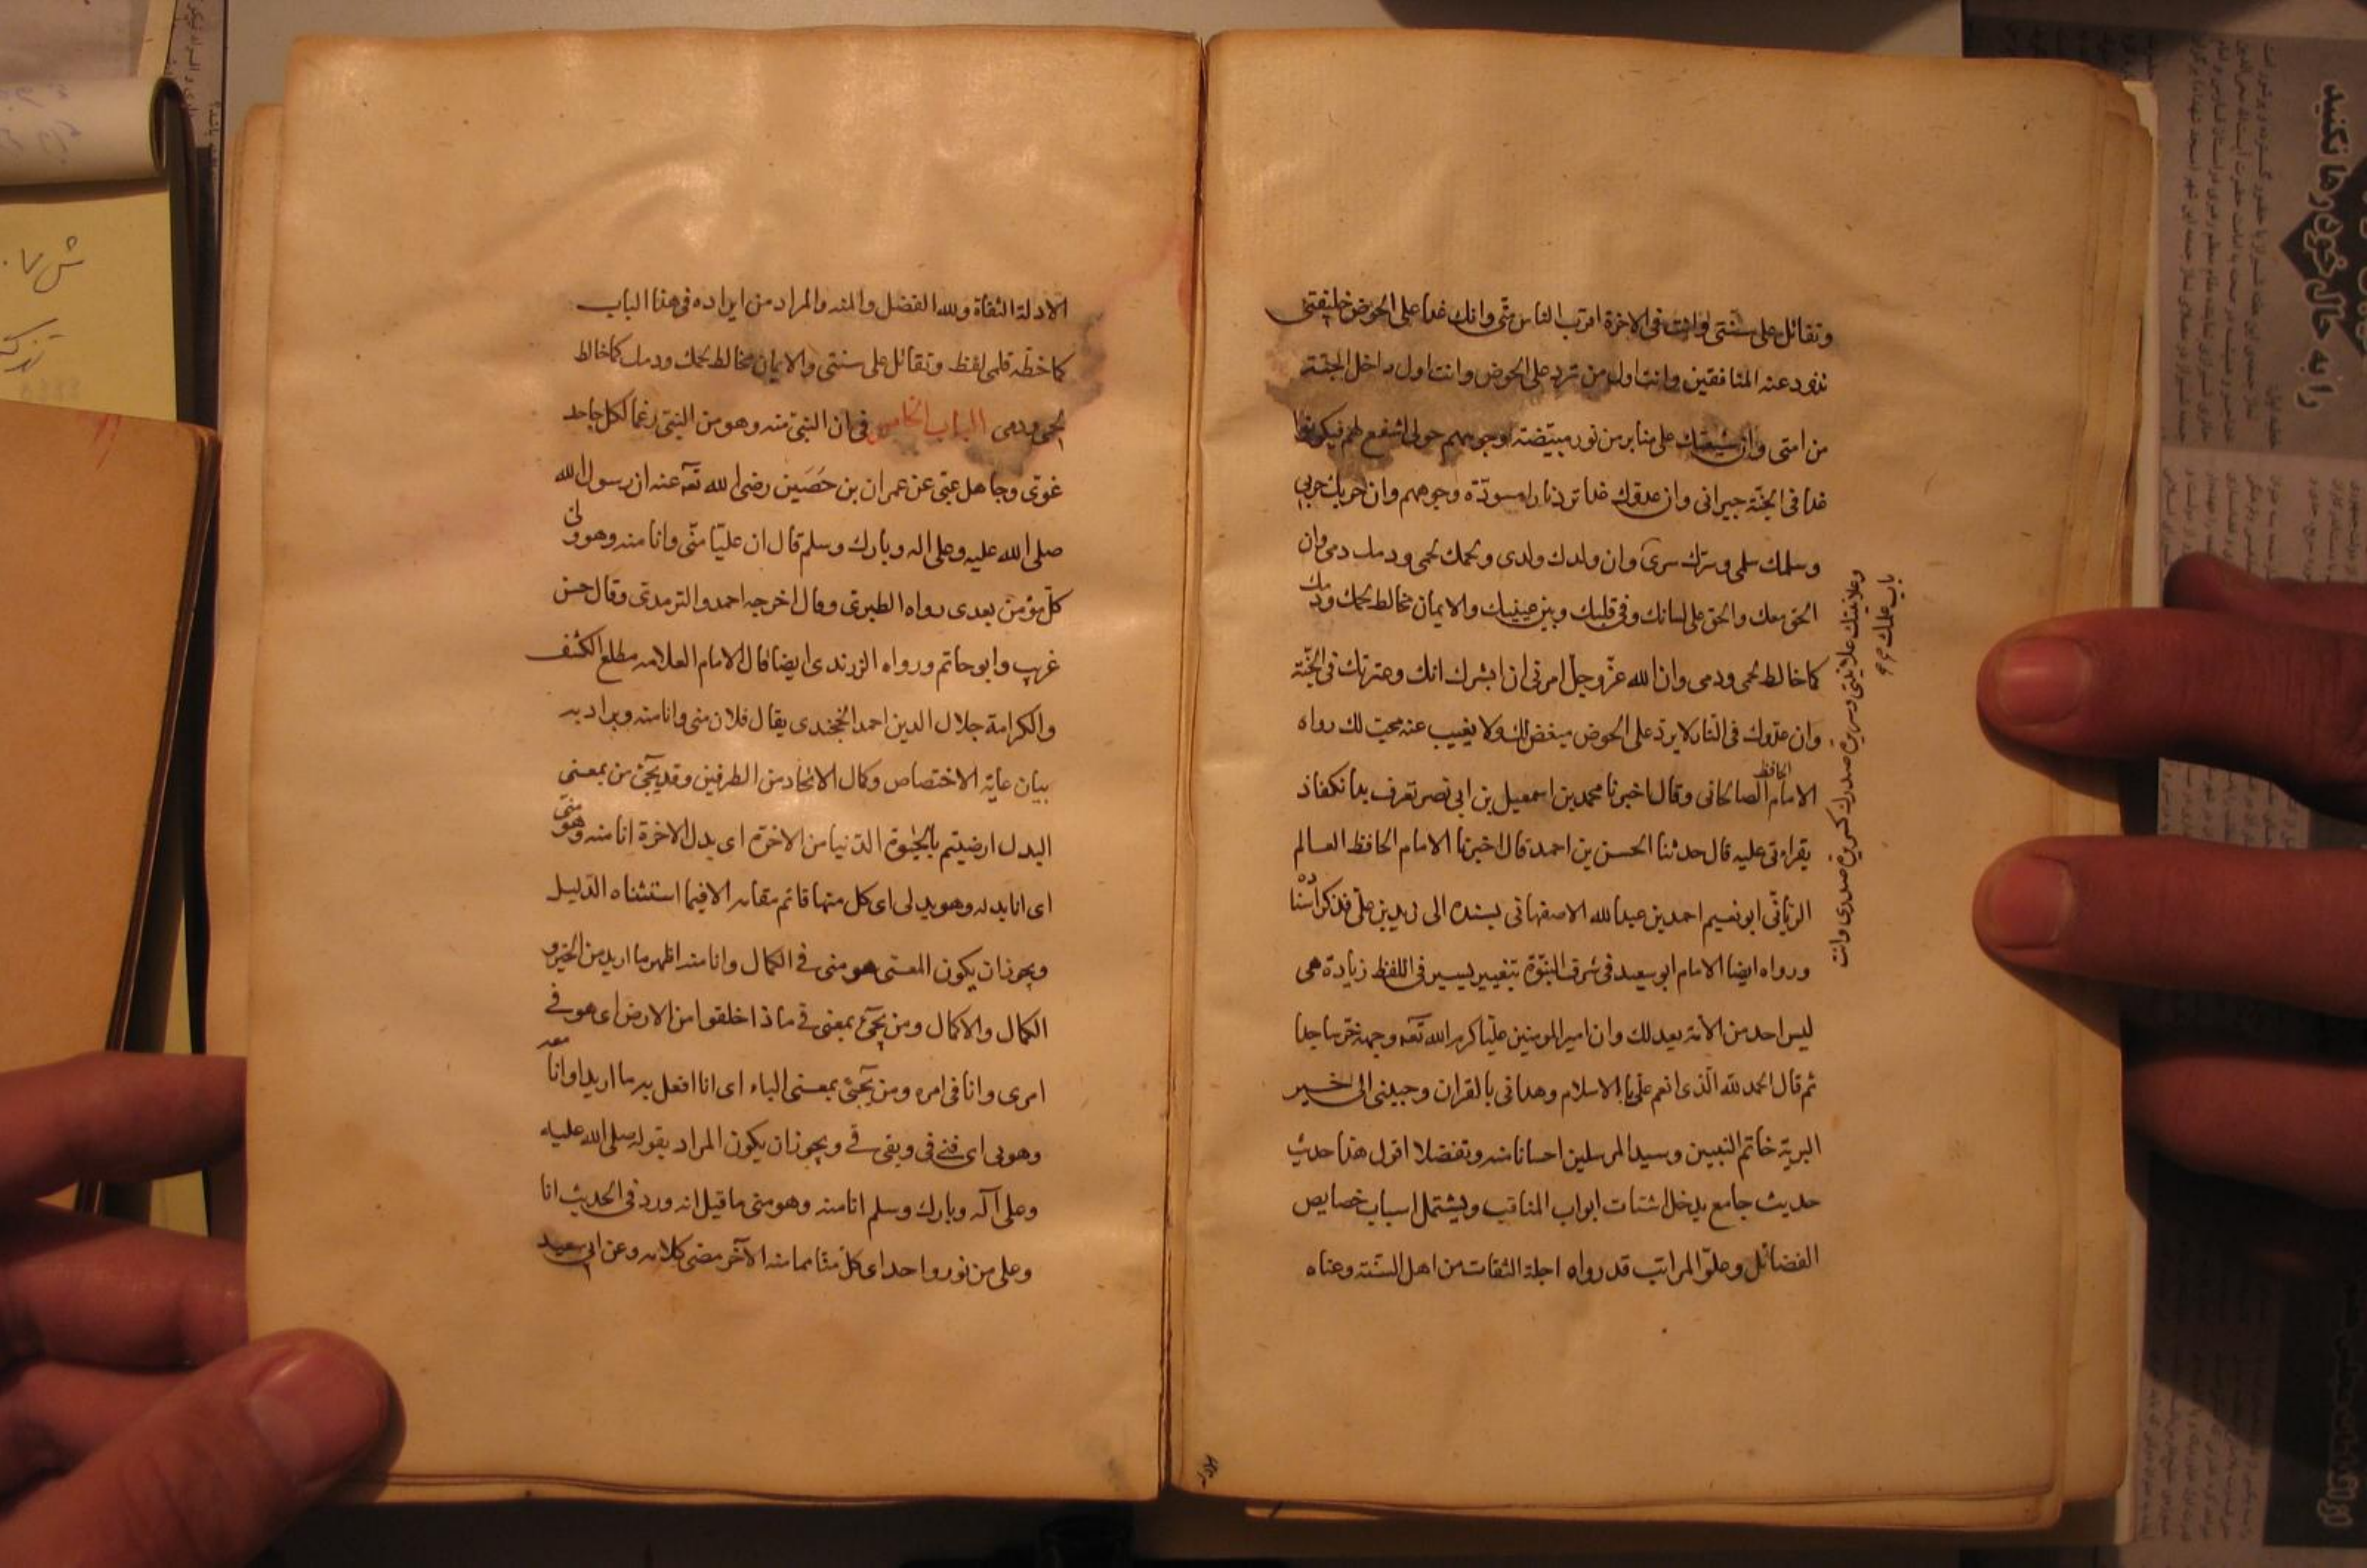 وتقاتل على سنتى وانت فى الاخرة اقرب الناس منّى وانك غدا على الحوض خليفتى
تذود عنه المنافقين وانت اول من ترد على الحوض وانت اول داخل الجنّة
من امتى وان شيعتك على منابر من نور مبيّضة وجوههم حولى اشفع لهم فيكونوا
غدا فى الجنّة جيرانى وان عدوك غدا ترد نارا مسودّة وجوههم وان حربك حربى
وسلمك سلمى وسرّك سرى وان ولدك ولدى ولحمك لحمى ودمك دمى وان
الحق معك والحق على لسانك وفى قلبك وبين عينيك والايمان مخالط لحمك ودمك
كما خالط لحمى ودمى وان الله عزّ وجلّ امرنى ان ابشرك انك وعترتك فى الجنّة
وان عدوك فى النّار لا يرد على الحوض مبغض لك ولا يغيب عنه محب لك رواه
الامام الحافظ الصالحانى وقال اخبرنا محمد بن اسمعيل بن ابى نصر تعرف بدانكفاذ
بقراءتى عليه قال حدثنا الحسن بن احمد قال اخبرنا الامام الحافظ العالم
الربّانّى ابو نعيم احمد بن عبد الله الاصفهانى بسنده الى زيد بن على فذكر اسناده
ورواه ايضا الامام ابو سعيد فى شرف النبوّة بتغيير يسير فى اللفظ زيادة هى
ليس احد من الأمة بعدلك وان امير المومنين عليّا كرم الله تعه وجهه خرّ ساجدا
ثم قال الحمد لله الّذى انعم علّى بالاسلام وهدانى بالقران وحببنى الى خير
البرية خاتم النبيين وسيد المرسلين احسانا منه وتفضلا اقول هذا حديث
حديث جامع يدخل اشتات ابواب المناقب ويشتمل اسباب خصايص
الفضائل وعلوّ المراتب قد رواه اجلة الثقات من اهل السّنة وعناه
وعلانيتك علانيتى وسريرة صدرك كسريرة صدرى وانت
باب علمك
الادلة
الادلة الثقاة ولله الفضل والمنه والمراد من ايراده فى هذا الباب
كما خطّه قلمى لفظ وتقاتل على سنتى والايمان مخالط لحمك ودمك كما خالط
لحمى ودمى الباب الخامس فى ان النبّى منه وهو من النبّى رغما لكل جاحد
غوى وجاهل غبى عن عمران بن حَصَين رضى الله تعه عنه ان رسول الله
صلى الله عليه وعلى اله وبارك وسلم قال ان عليّا منّى وانا منه وهو ولى
كلّ مؤمن بعدى رواه الطبرى وقال اخرجه احمد والترمدى وقال حسن
غريب وابو حاتم ورواه الزرندى ايضا قال الامام العلامه مطلع الكشف
والكرامة جلال الدين احمد الخجندى يقال فلان منى وانا منه ويراد به
بيان غاية الاختصاص وكمال الاتحاد من الطرفين وقد يجئ من بمعنى
البدل ارضيتم بالحيٰوة الدّنيا من الاخرة اى بدل الاخرة انا منه وهو منّى
اى انا بدله وهو بدلى اى كل منها قائم مقامه الا فيما استثناه الدّليل
ويجوز ان يكون المعنى هو منى فى الكمال وانا منه اظهر ما اريد من الخير و
الكمال والاكمال ومن يجئ بمعنى فى ماذا خلقوا من الارض اى هو فى
امرى وانا فى امره ومن يجئ بمعنى الباء اى انا افعل به ما اريد او انا معه
وهو بى اى فنى فى وبقى فى ويجوز ان يكون المراد بقوله صلى الله عليه
وعلى آله وبارك وسلم انا منه وهو منى ما قيل انه ورد فى الحديث انا
وعلى من نور واحد اى كلّ منّا مما منه الآخر مضى كلامه وعن ابى سعيد